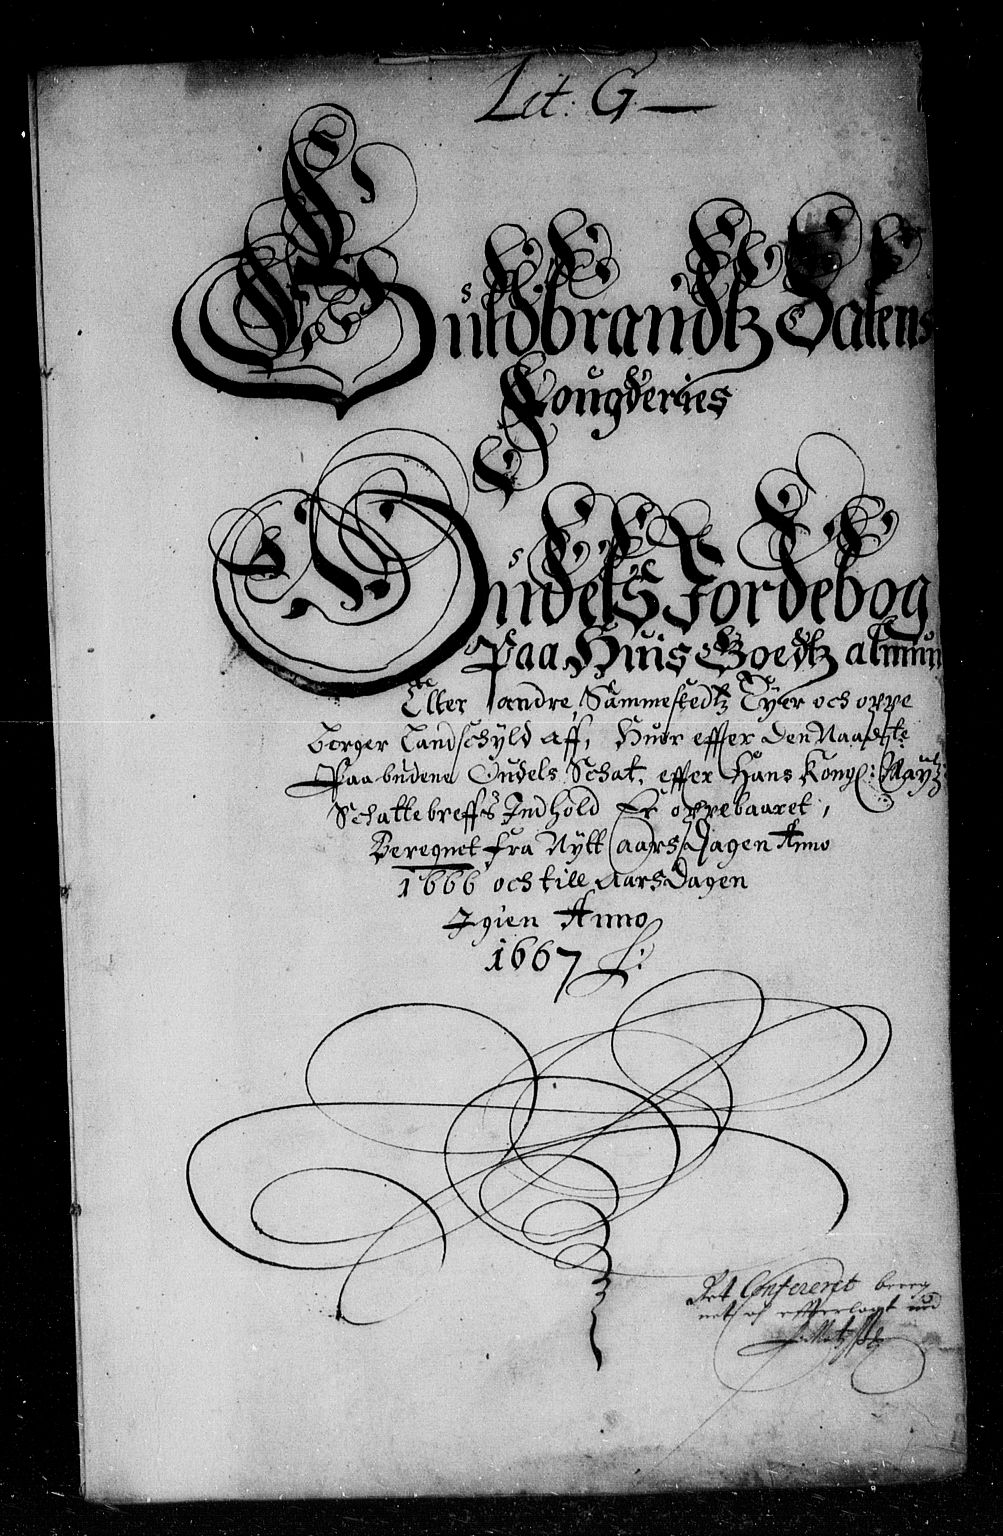 Lit: G
Guldbrandtz Dalens
Fougderies
Oudels Jordebog
Paa Huis Goedtz almuen
Eller andre Sammestedtz Eyer och oppe
berger Landschyld aff, Huor effter den Naadigste
Paabudene Oudels Schat, effter Hans Kongl: Maytz:
Schattebreffs Indhold Er oppebaaret,
Beregnet fra Nytt aars dagen Anno
1666 och till aarsdagen
Igien Anno
1667
Ret Confereret bereg
net och effterlagt